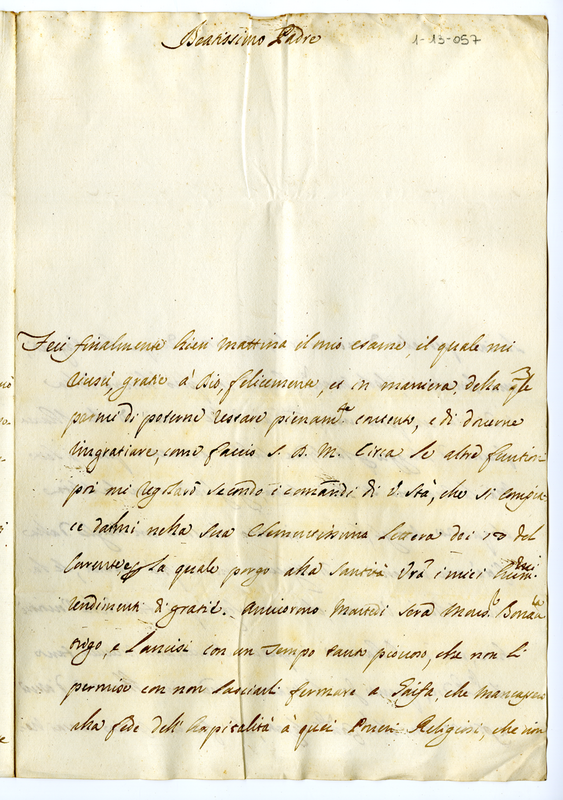 Beatissimo Padre
1-13-057
Feci finalmente hieri mattina il mio esame, il quale mi
riuscì, gratie à Dio, felicemente, et in maniera, della qle
parmi di poterne restare pienamte contento, e di doverne
ringratiare, come faccio S. D. M. Circa le altre funtioni
poi mi regolarò secondo i comandi di V. Stà, che si compia-
ce darmi nella sua Clementissima lettera dei 10 del
Corrente, p la quale porgo alla Santità Vrã i miei humi
rendimenti di gratie. Arrivorono Martedi sera Monsr
e Lancisi con un tempo tanto piovoso, che non li
permise con non lasciarli fermare a, che
alla fede dell'hospitalità à quei Poveri Religiosi, che non